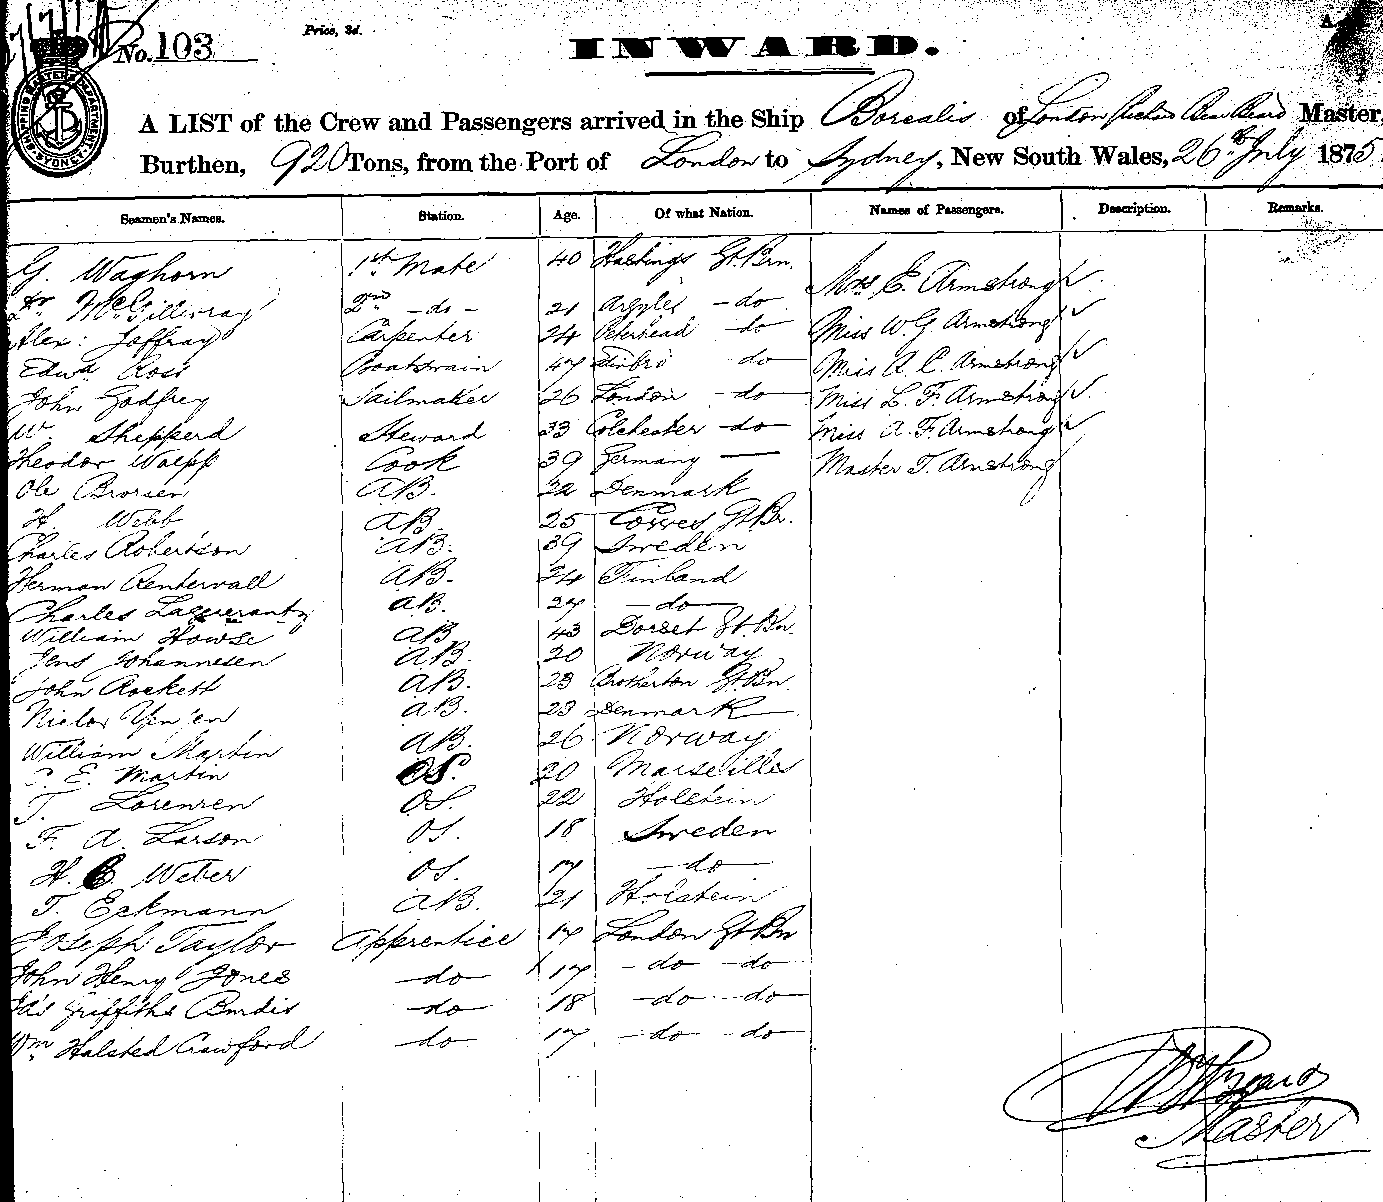 No. 103
Price, 3d.
INWARD.
SHIPPING MASTER'S DEPARTMENT SYDNEY
A LIST of the Crew and Passengers arrived in the Ship Borealis of London Master,
Burthen, 920 Tons, from the Port of London to Sydney, New South Wales, 26th July 1875
Seamen's Names. Station. Age. Of what Nation. Names of Passengers. Description. Remarks.
G. Waghorn 1st Mate 40 Hastings Gt. Brn. Mrs E. Armstrong
McGillivray 2nd - do - 21 Argyle - do Miss W G Armstrong
Alex: Jaffray Carpenter 24 Peterhead do Miss A. C. Armstrong
Edwd Ross Boatswain 47 Edinbro do Miss L. F. Armstrong
John Godfrey Sailmaker 26 London - do - Miss A. F. Armstrong
W Shepperd Steward 33 Colchester - do - Master T. Armstrong
Theodor Waepp Cook 39 Germany —
Ole Brorsen A.B. 22 Denmark
H. Webb A.B. 25 Cowes Gt. Br.
Charles Robertson A.B. 39 Sweden
Herman Rentervall A.B. 24 Finland
Charles A.B. 24 - do -
William Howse A.B 43 Dorset Gt. Brn.
Jens Johannesen A.B. 20 Norway
John Rockett A.B. 23 Brotherton Gt. Brn.
A.B. 23 Denmark
William Martin A.B. 26 Norway
E. Martin O.S. 20 Marseilles
T. Lorenzen O.S. 22 Holstein
F. A. Larson O.S. 18 Sweden
H. C. Weber O.S. 17 - do -
T. Eckmann A.B. 21 Holstein
Joseph Taylor Apprentice 17 London Gt. Brn
John Henry Jones - do 17 - do - do -
Jas Griffiths Burdis - do 18 - do - do
Wm Halsted Crawford - do 17 - do - do
Master